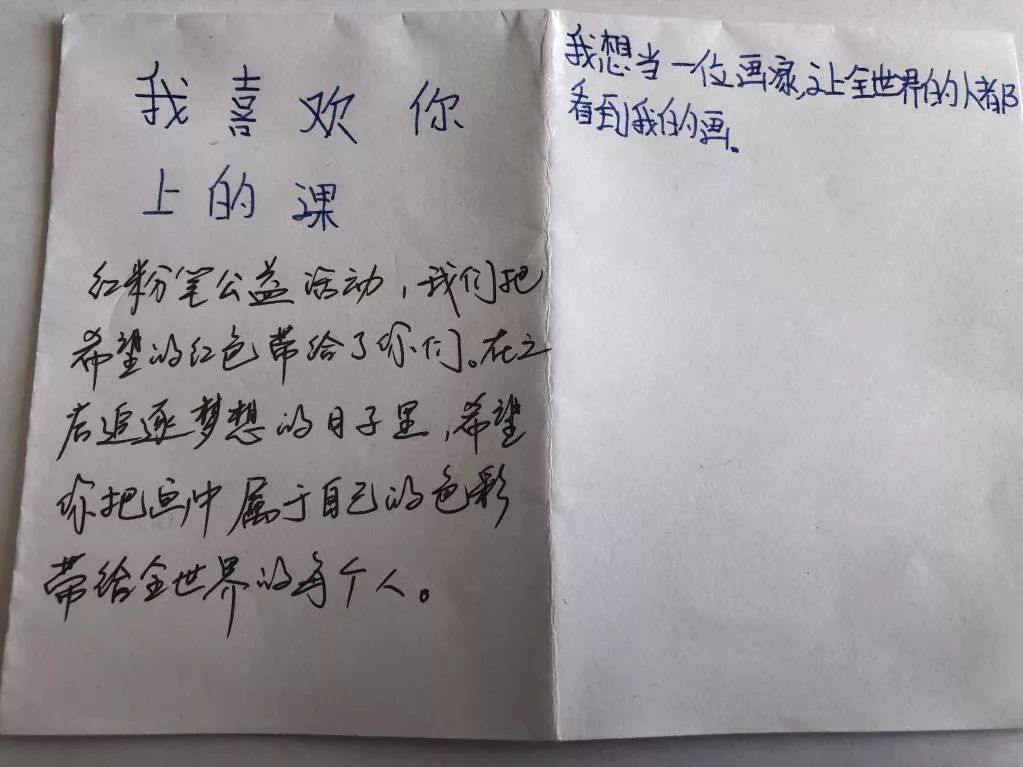 我喜欢你
上的课
红粉笔公益活动，我们把
希望的红色带给了你们。在之
后追逐梦想的日子里，希望
你把画中属于自己的色彩
带给全世界的每个人。
我想当一位画家,让全世界的人都
看到我的画。